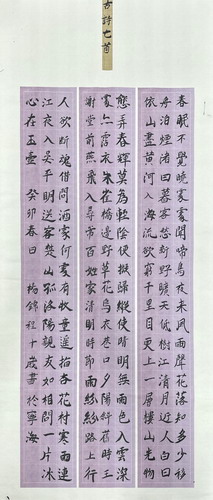 古詩七首
春眠不覺曉處處聞啼鳥夜來風雨聲花落知多少移
舟泊煙渚日暮客愁新野曠天低樹江清月近人白日
依山盡黃河入海流欲窮千里目更上一層樓山光物
態弄春輝莫為輕陰便擬歸縱使晴明無雨色入雲深
處亦霑衣朱雀橋邊野草花烏衣巷口夕陽斜舊時王
謝堂前燕飛入尋常百姓家清明時節雨絲絲路上行
人欲斷魂借問酒家何處有牧童遥指杏花村寒雨連
江夜入吳平明送客楚山孤洛陽親友如相問一片冰
心在玉壺 癸卯春日 楊錦程十歲書於寧海